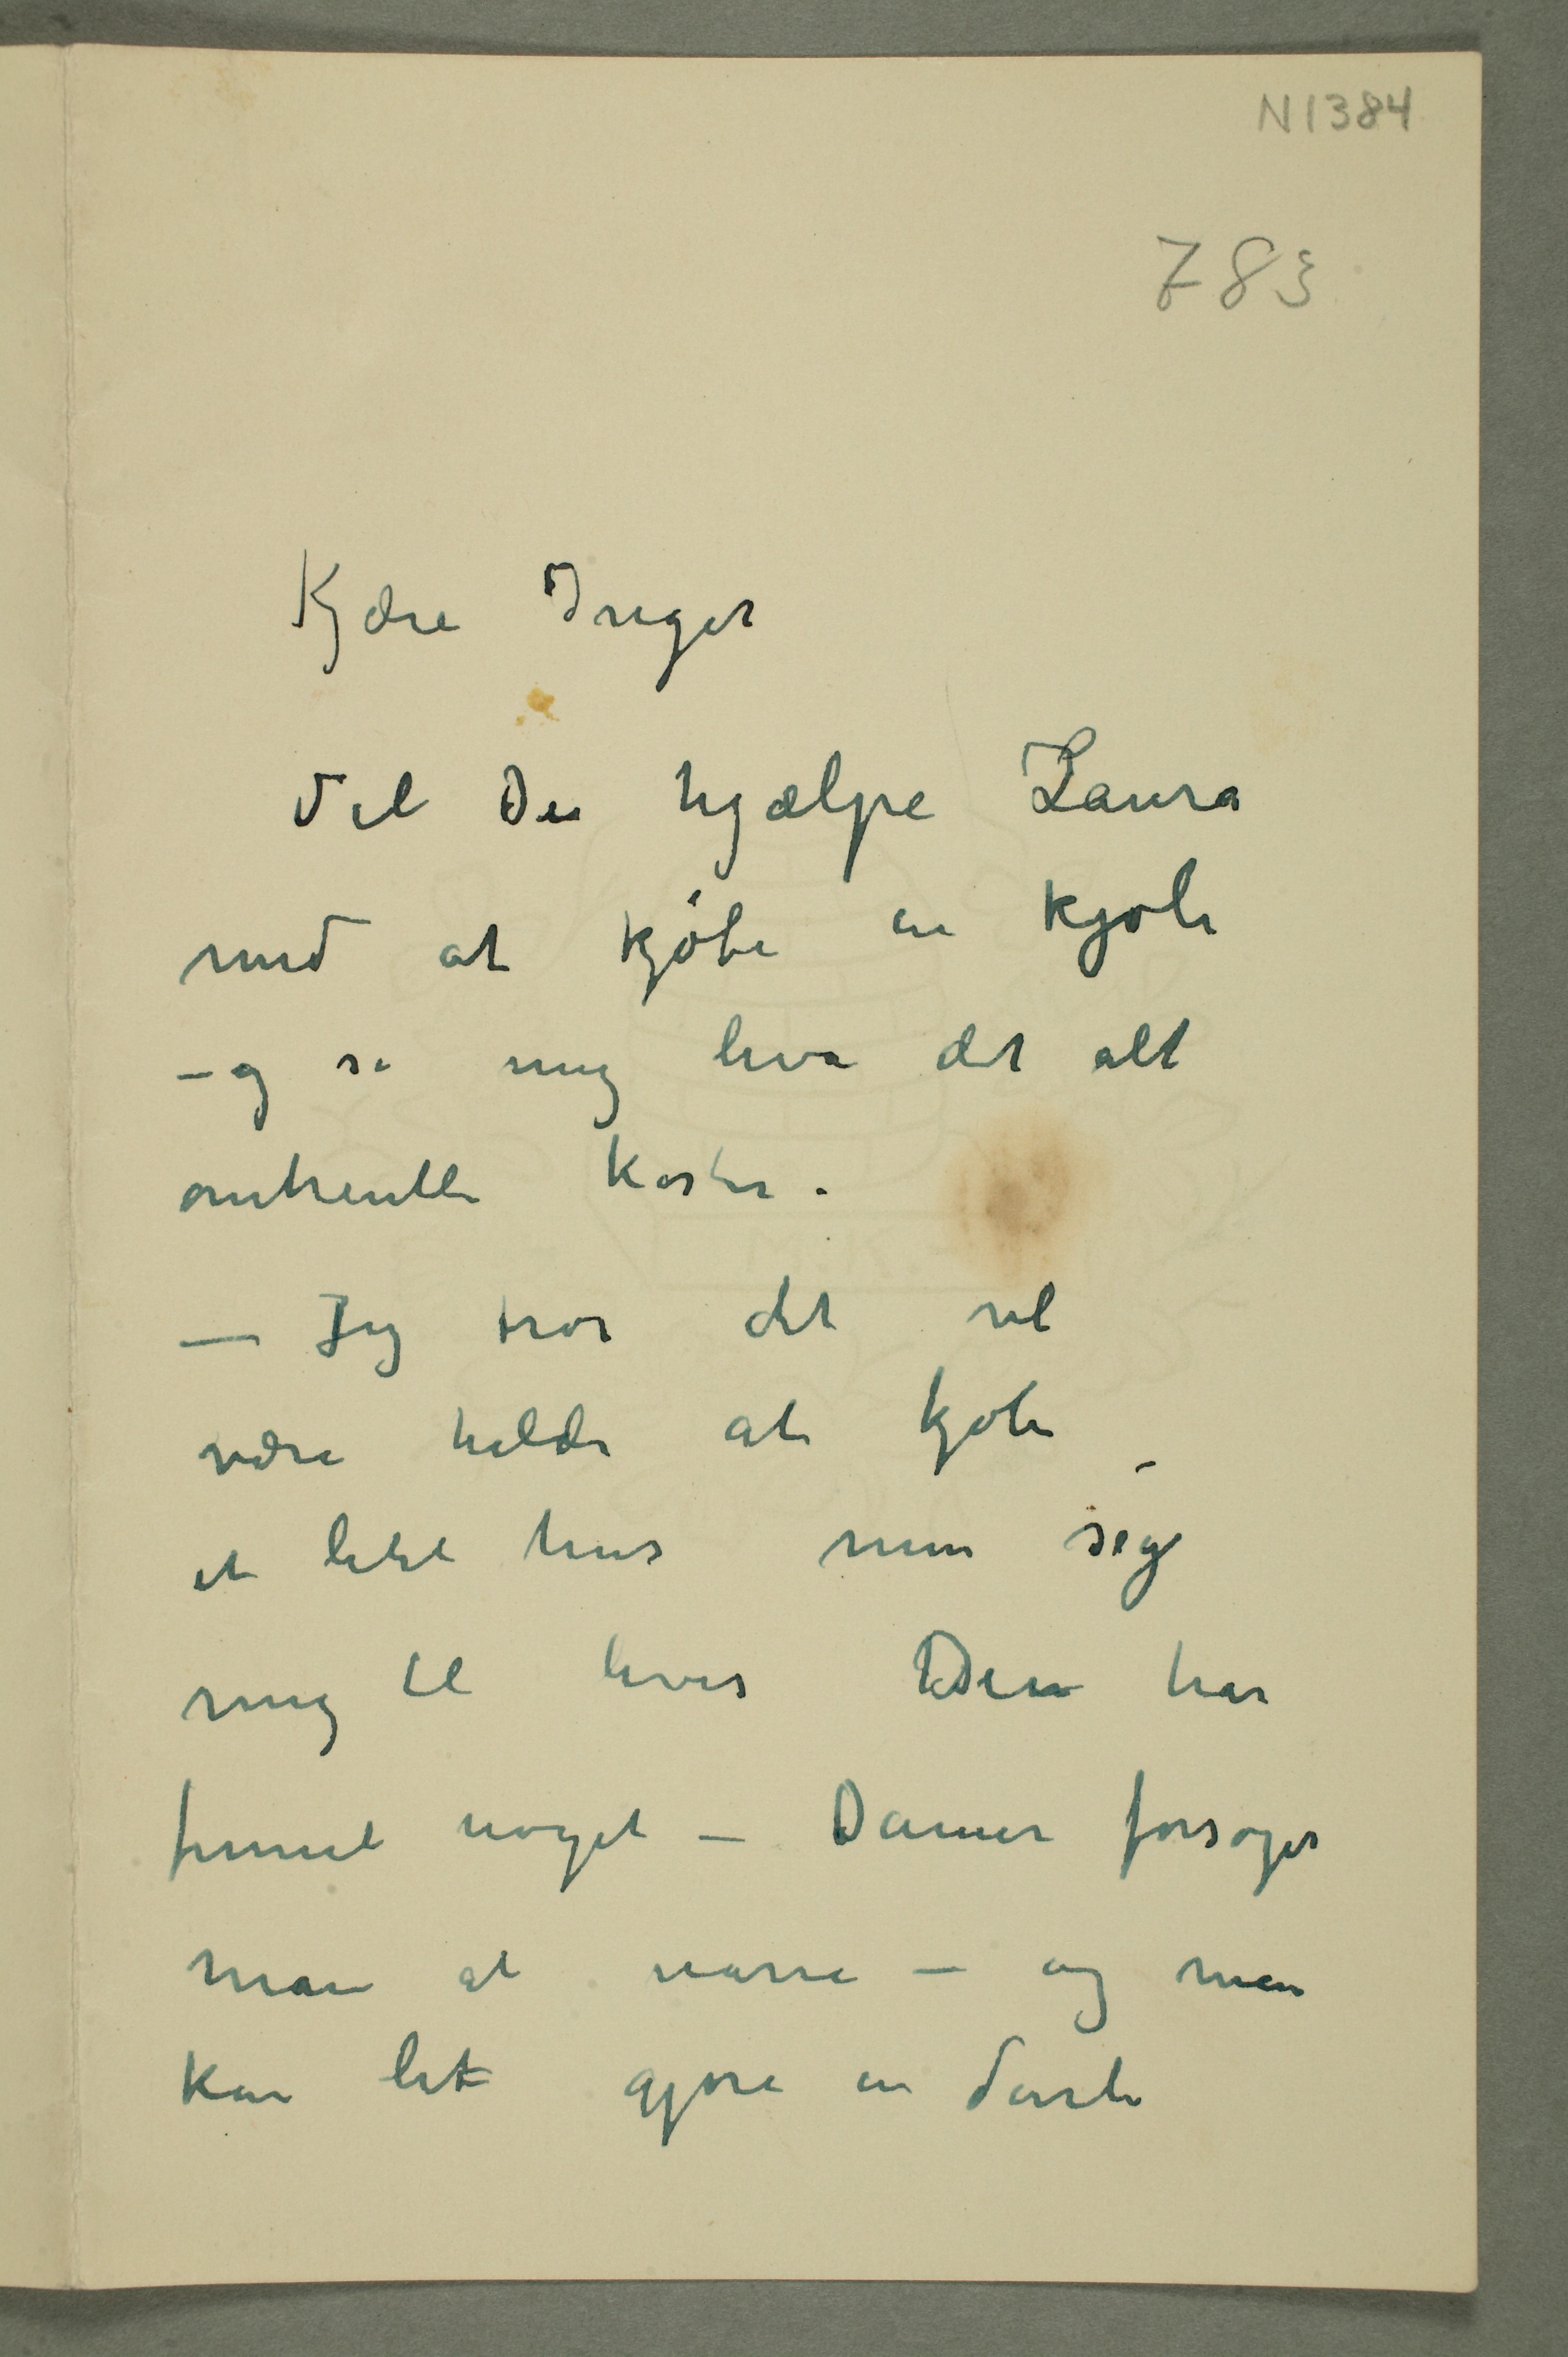 N1384
783
Kjære Inger
Vil Du hjælpe Laura
med at kjøbe en kjole
– og si mig hva det alt
omtrentlig koster.
– Jeg tror det vil
være heldi at kjøbe
et litet hus men sig
mig til hvis Du har
funnet noget – Damer forsøger
man at narre – og man
kan let gjøre en dårli